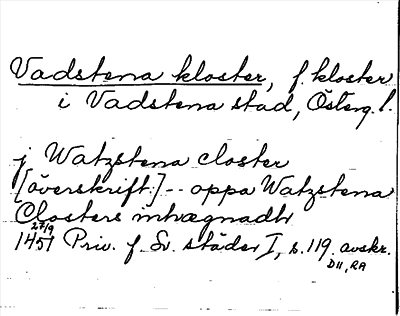 Vadstena kloster, f. kloster
i Vadstena stad, Österg. l.
j Watzstena closter
[överskrift.] -- oppa Watzstena
Closters inhægnadhr
27/9
1451 Priv. f. Sv. städer I, s. 119. avskr.
D11, RA